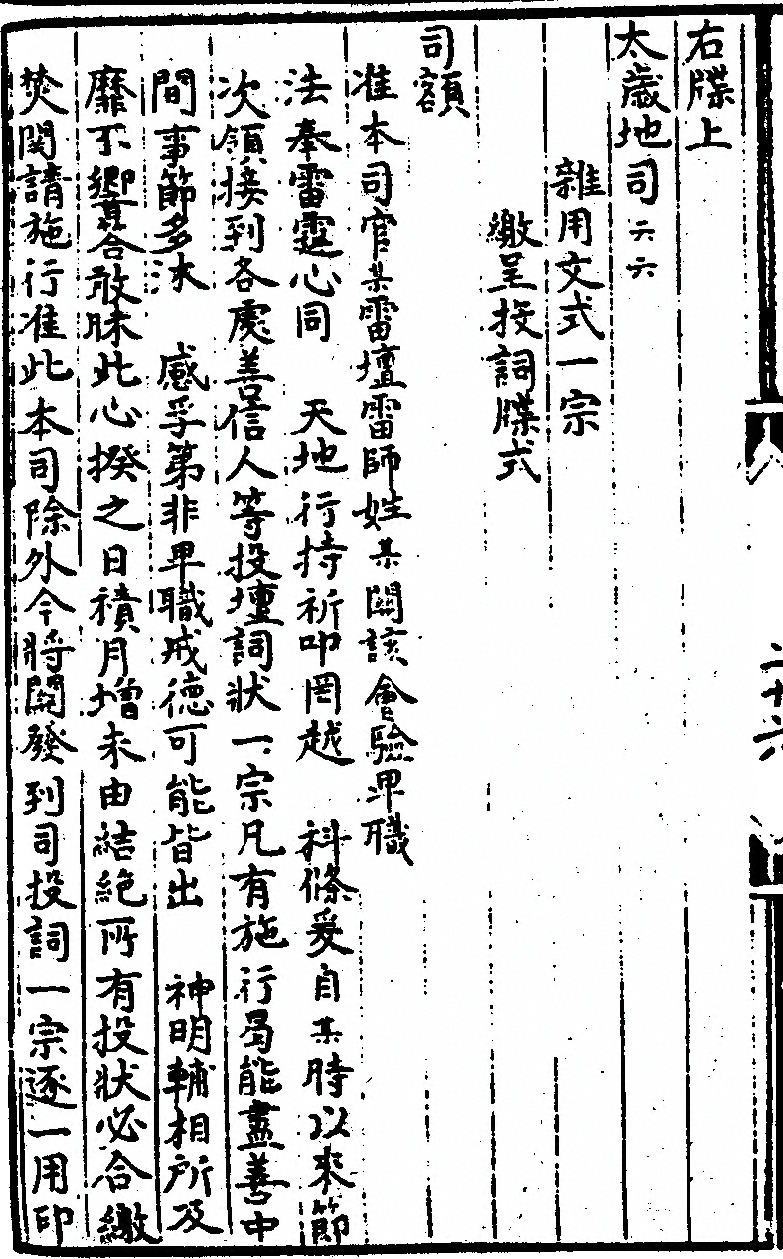 右牒上
太歲地司云云
雜用文式一宗
繳呈投詞牒式
司額
准本司官某雷壇雷師姓某關該會驗卑職
法奉雷霆心同　天地行持祈叩罔越　科條爰自某時以來節
次領接到各處善信人等投壇詞狀一宗凡有施行曷能盡善中
間事節多沐　感孚第非卑職戒德可能皆出　神明輔相所及
靡不響合敢昧此心揆之日積月增未由結絕所有投狀必合繳
焚関請施行准此本司除外今將關發到司投詞一宗逐一用印